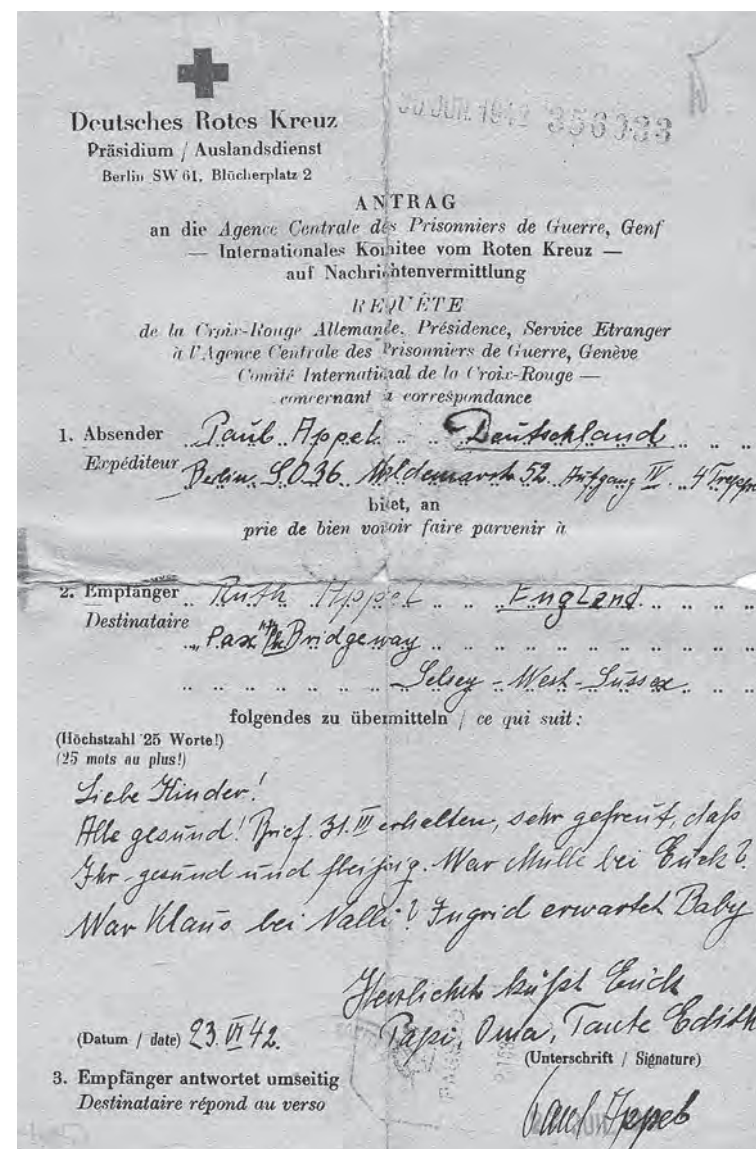 Deutsches Rotes Kreuz
Präsidium / Auslandsdienst
Berlin SW 61, Blücherplatz 2
30 JUN. 1942 356933
ANTRAG
an die Agence Centrale des Prisonniers de Guerre, Genf
— Internationales Komitee vom Roten Kreuz —
auf Nachrichtenvermittlung
REQUÊTE
de la Croix-Rouge Allemande, Présidence, Service Etranger
à l'Agence Centrale des Prisonniers de Guerre, Genève
— Comité International de la Croix-Rouge —
concernant la correspondance
1. Absender Paul Appel Deutschland
Expéditeur Berlin S.O36 52 Aufgang IV 4 Treppen
bittet, an
prie de bien vouloir faire parvenir à
2. Empfänger Ruth Appel England
Destinataire Pax Bridgeway
Selsey - West-Sussex
folgendes zu übermitteln / ce qui suit:
(Höchstzahl 25 Worte!)
(25 mots au plus!)
Liebe Kinder!
Alle gesund! Brief 31.III erhalten, sehr gefreut, daß
Ihr gesund und fleißig. War bei Euch?
War Klaus bei Nalli? Ingrid erwartet Baby
Herzlichst küßt Euch
Papi, Oma, Tante Edith
(Datum / date) 23.VI 42.
(Unterschrift / Signature)
3. Empfänger antwortet umseitig
Destinataire répond au verso
Paul Appel